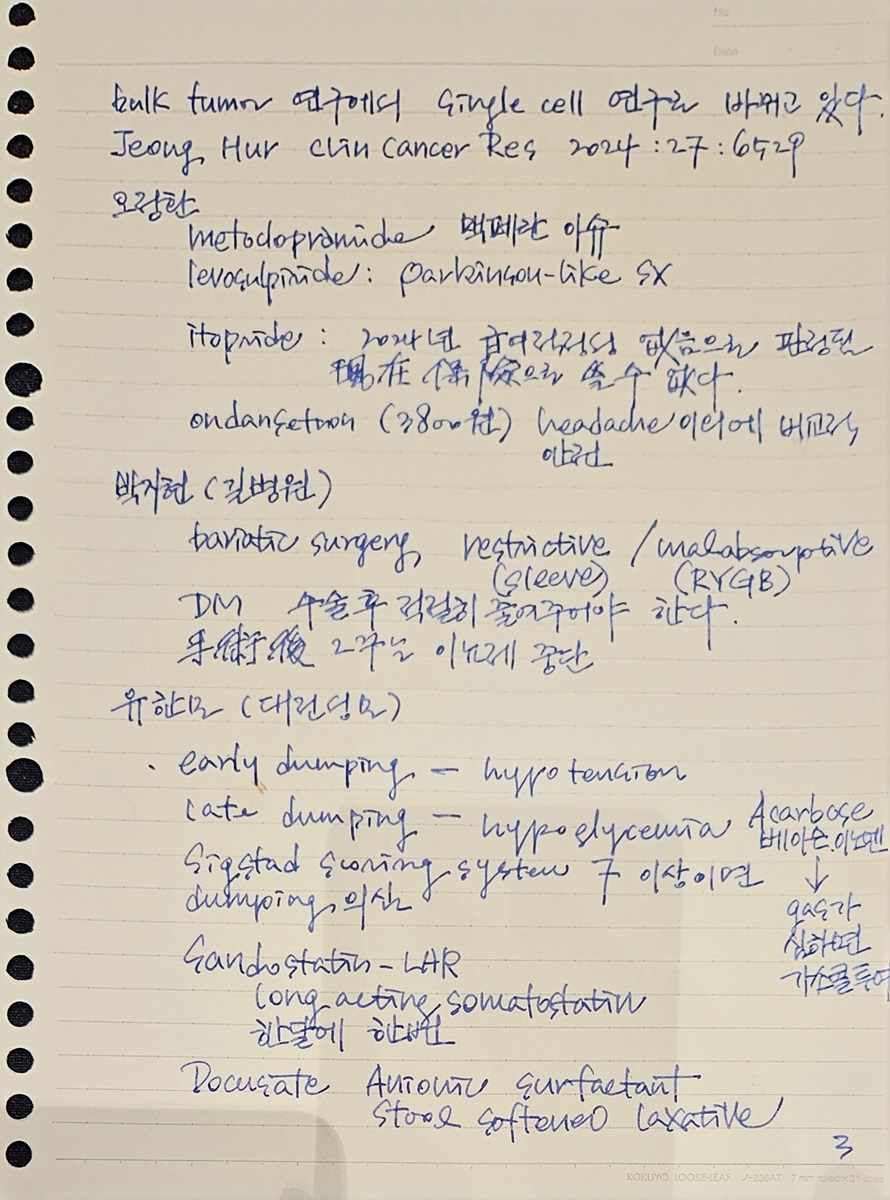 No.
Date
bulk tumor 연구에서 single cell 연구로 바뀌고 있다.
Jeong, Hur clin cancer Res 2024:27:6529
오장한
metoclopramide 맥페란 아슈
levosulpiride: parkinson-like sx
itopride: 2024년 급여적정성 없음으로 판정됨
現在 保險으로 쓸 수 없다.
ondansetron (3800원) headache 이외에 비교적
안전
박지현 (길병원)
bariatic surgery, restrictive / malabsorptive
(sleeve) (RYGB)
DM 수술후 적절히 줄여주어야 한다.
手術後 2주날 이뇨제 중단
유한모 (대전성모)
· early dumping – hypotension
late dumping – hypoglycemia Acarbose
베아손.
Sigstad scoring system 7 이상이면
dumping, 의심
↓
gas가
심하면
Sandostatin-LAR
long acting somatostatin
한달에 한번
Docusate Anionic surfactant
stool softened laxative
3
KOKUYO LOOSE-LEAF ノ-836AT 7 mm ruled×31 lines